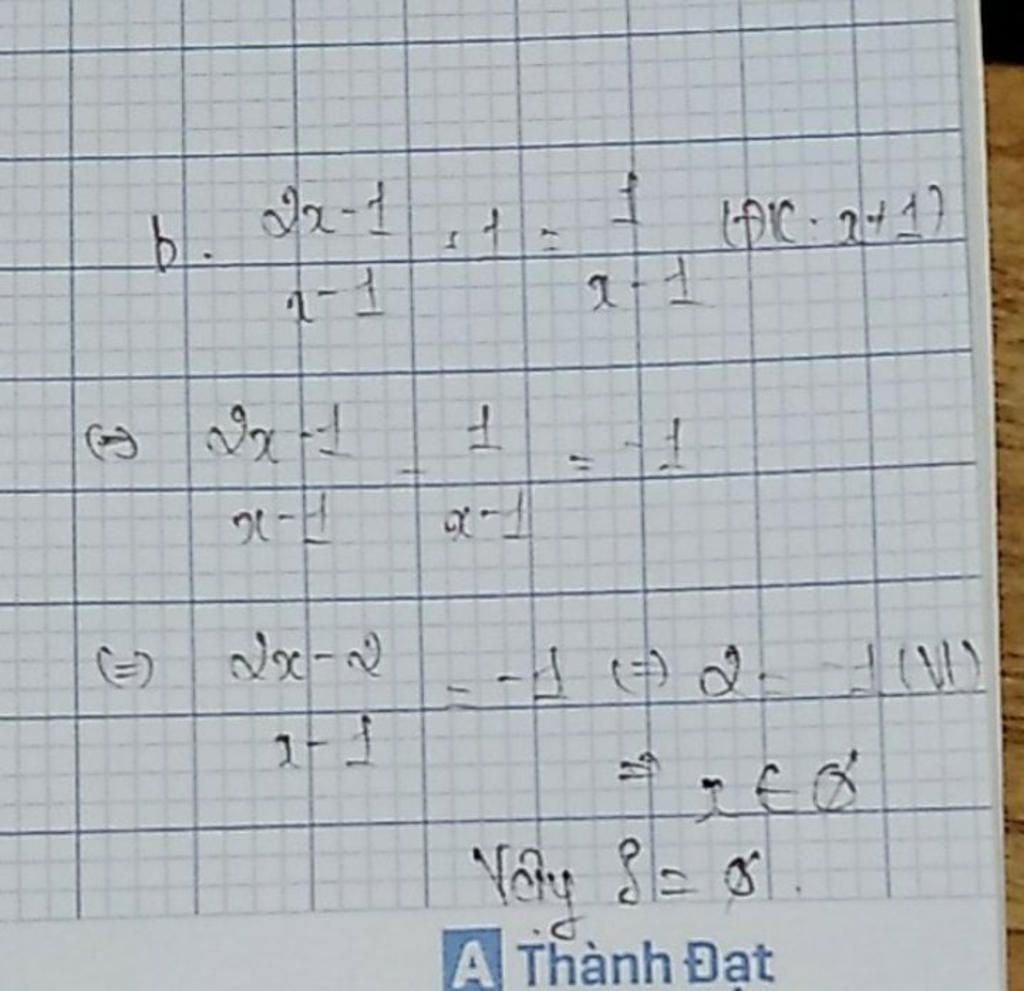 b. (2x-1)/(x-1) + 1 = 1/(x-1) (ĐK: x ≠ 1)
(=) (2x-1)/(x-1) - 1/(x-1) = -1
(=) (2x-2)/(x-1) = -1 (=) 2 = -1 (Vl)
=> x ∈ ∅
Vậy S = ∅.
A Thành Đạt